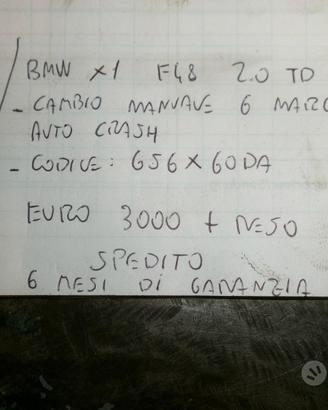 BMW X1 F48 2.0 TD
- CAMBIO MANUALE 6 MARC
AUTO CRASH
- CODICE: 656X60DA
EURO 3000 + RESO
SPEDITO
6 MESI DI GARANZIA